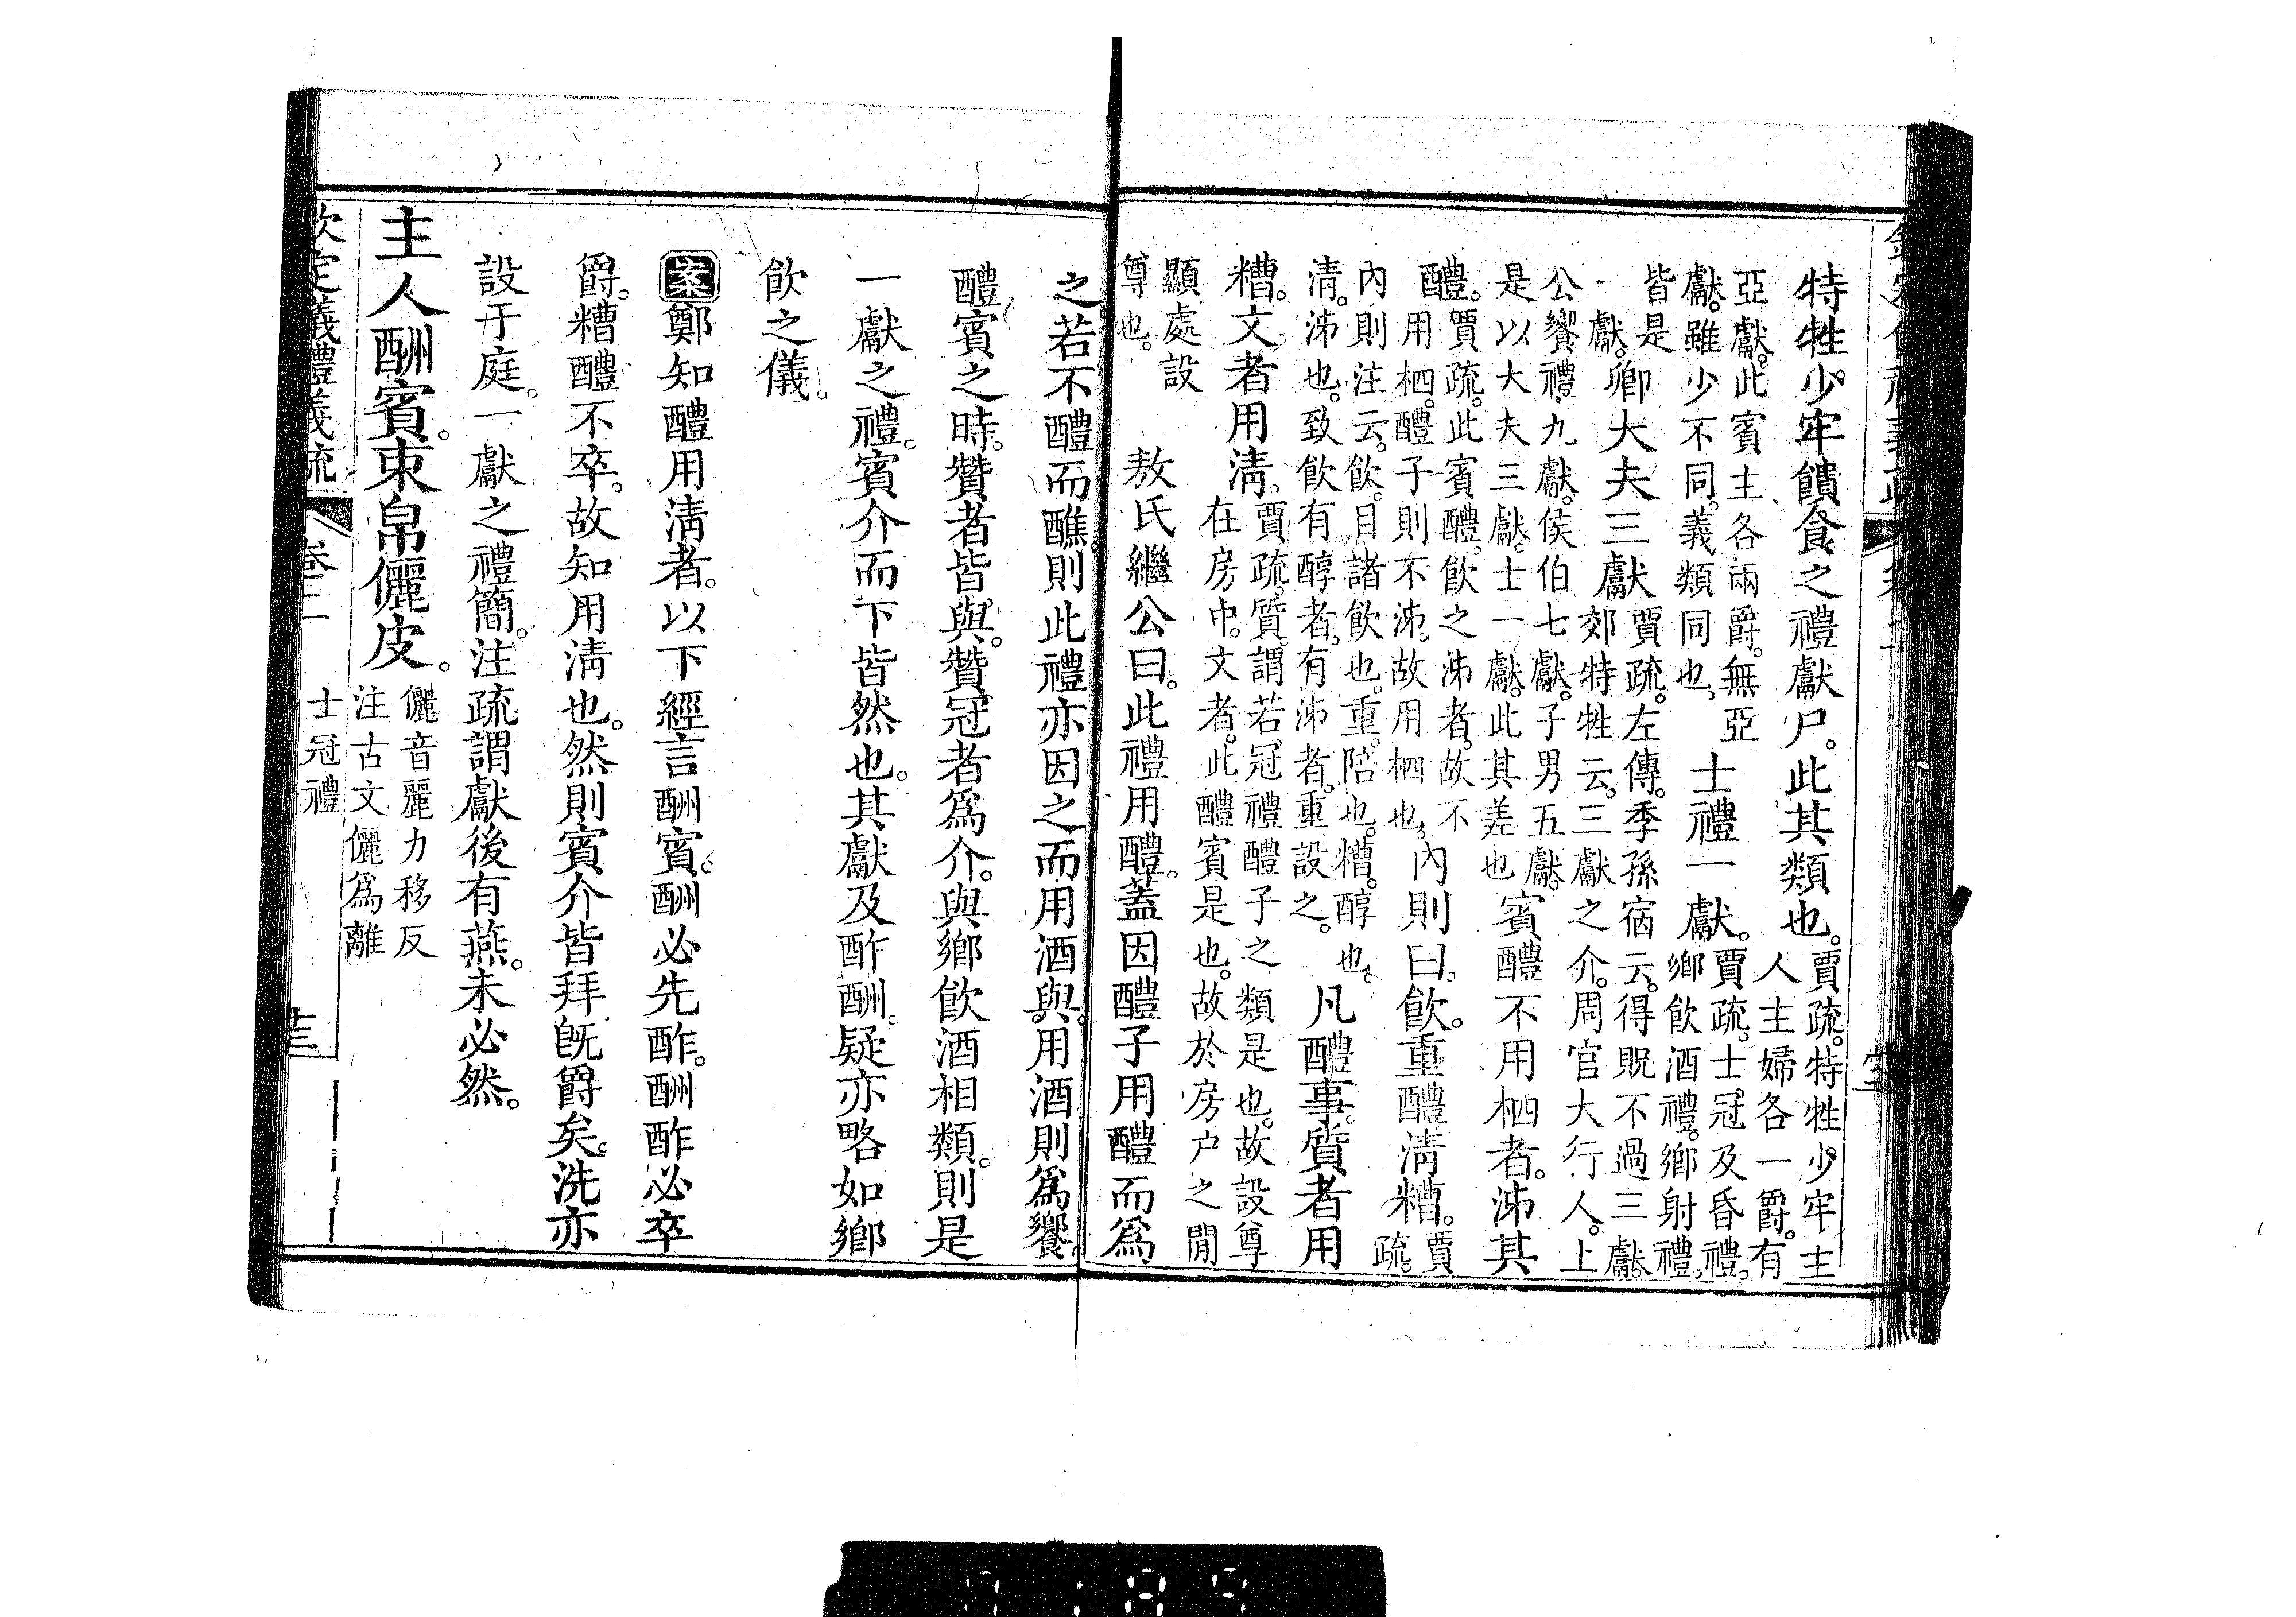 特牲少牢饋食之禮獻尸。此其類也。賈疏。特牲少牢主
人主婦各一爵。有
亞獻。此賓主各兩爵。無亞
獻。雖少不同。義類同也。士禮一獻。賈疏。士冠及昏禮。
鄉飲酒禮。鄉射禮。
皆是
一獻。卿大夫三獻賈疏。左傳。季孫宿云。得貺不過三獻。
郊特牲云。三獻之介。周官大行人。上
公饗禮。九獻。侯伯七獻。子男五獻。
是以大夫三獻。士一獻。此其差也賓醴不用柶者。泲其
醴。賈疏。此賓醴。飲之泲者。故不
用柶。醴子則不泲。故用柶也。內則曰。飲。重醴淸糟。賈
疏。
內則注云。飲。目諸飲也。重。陪也。糟。醇也。
淸。泲也。致飲有醇者。有泲者。重設之。凡醴事。質者用
糟。文者用淸。賈疏。質。謂若冠禮醴子之類是也。故設尊
在房中。文者。此醴賓是也。故於房户之閒
顯處設
尊也。敖氏繼公曰。此禮用醴。蓋因醴子用醴而爲
之。若不醴而醮。則此禮亦因之而用酒與。用酒則爲饗。
醴賓之時。贊者皆與。贊冠者爲介。與鄉飲酒相類。則是
一獻之禮。賓介而下皆然也。其獻及酢酬。疑亦略如鄉
飲之儀。
案鄭知醴用淸者。以下經言酬賓。酬必先酢。酬酢必卒
爵。糟醴不卒。故知用淸也。然則賓介皆拜旣爵矣。洗亦
設于庭。一獻之禮簡。注疏謂獻後有燕。未必然。
主人酬賓。束帛儷皮。儷音麗力移反
注古文儷爲離
欽定儀禮義疏 卷二 士冠禮 廿三